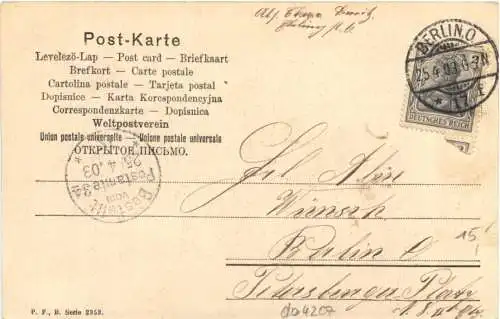 Post-Karte
Levelező-Lap — Post card — Briefkaart
Brefkort — Carte postale
Cartolina postale — Tarjeta postal
Dopisnice — Karta Korespondencyjna
Correspondenzkarte — Dopisnica
Weltpostverein
Union postale universelle — Unione postale universale
ОТКРЫТОЕ ПИСЬМО.
BERLIN.O
25.4.03
17 E
DEUTSCHES REICH
Bestellt vom
Postamte 34
25.4.03
Wunsch
Berlin O
Petersburger Platz
15
P. F., B. Serie 2353.
do4207